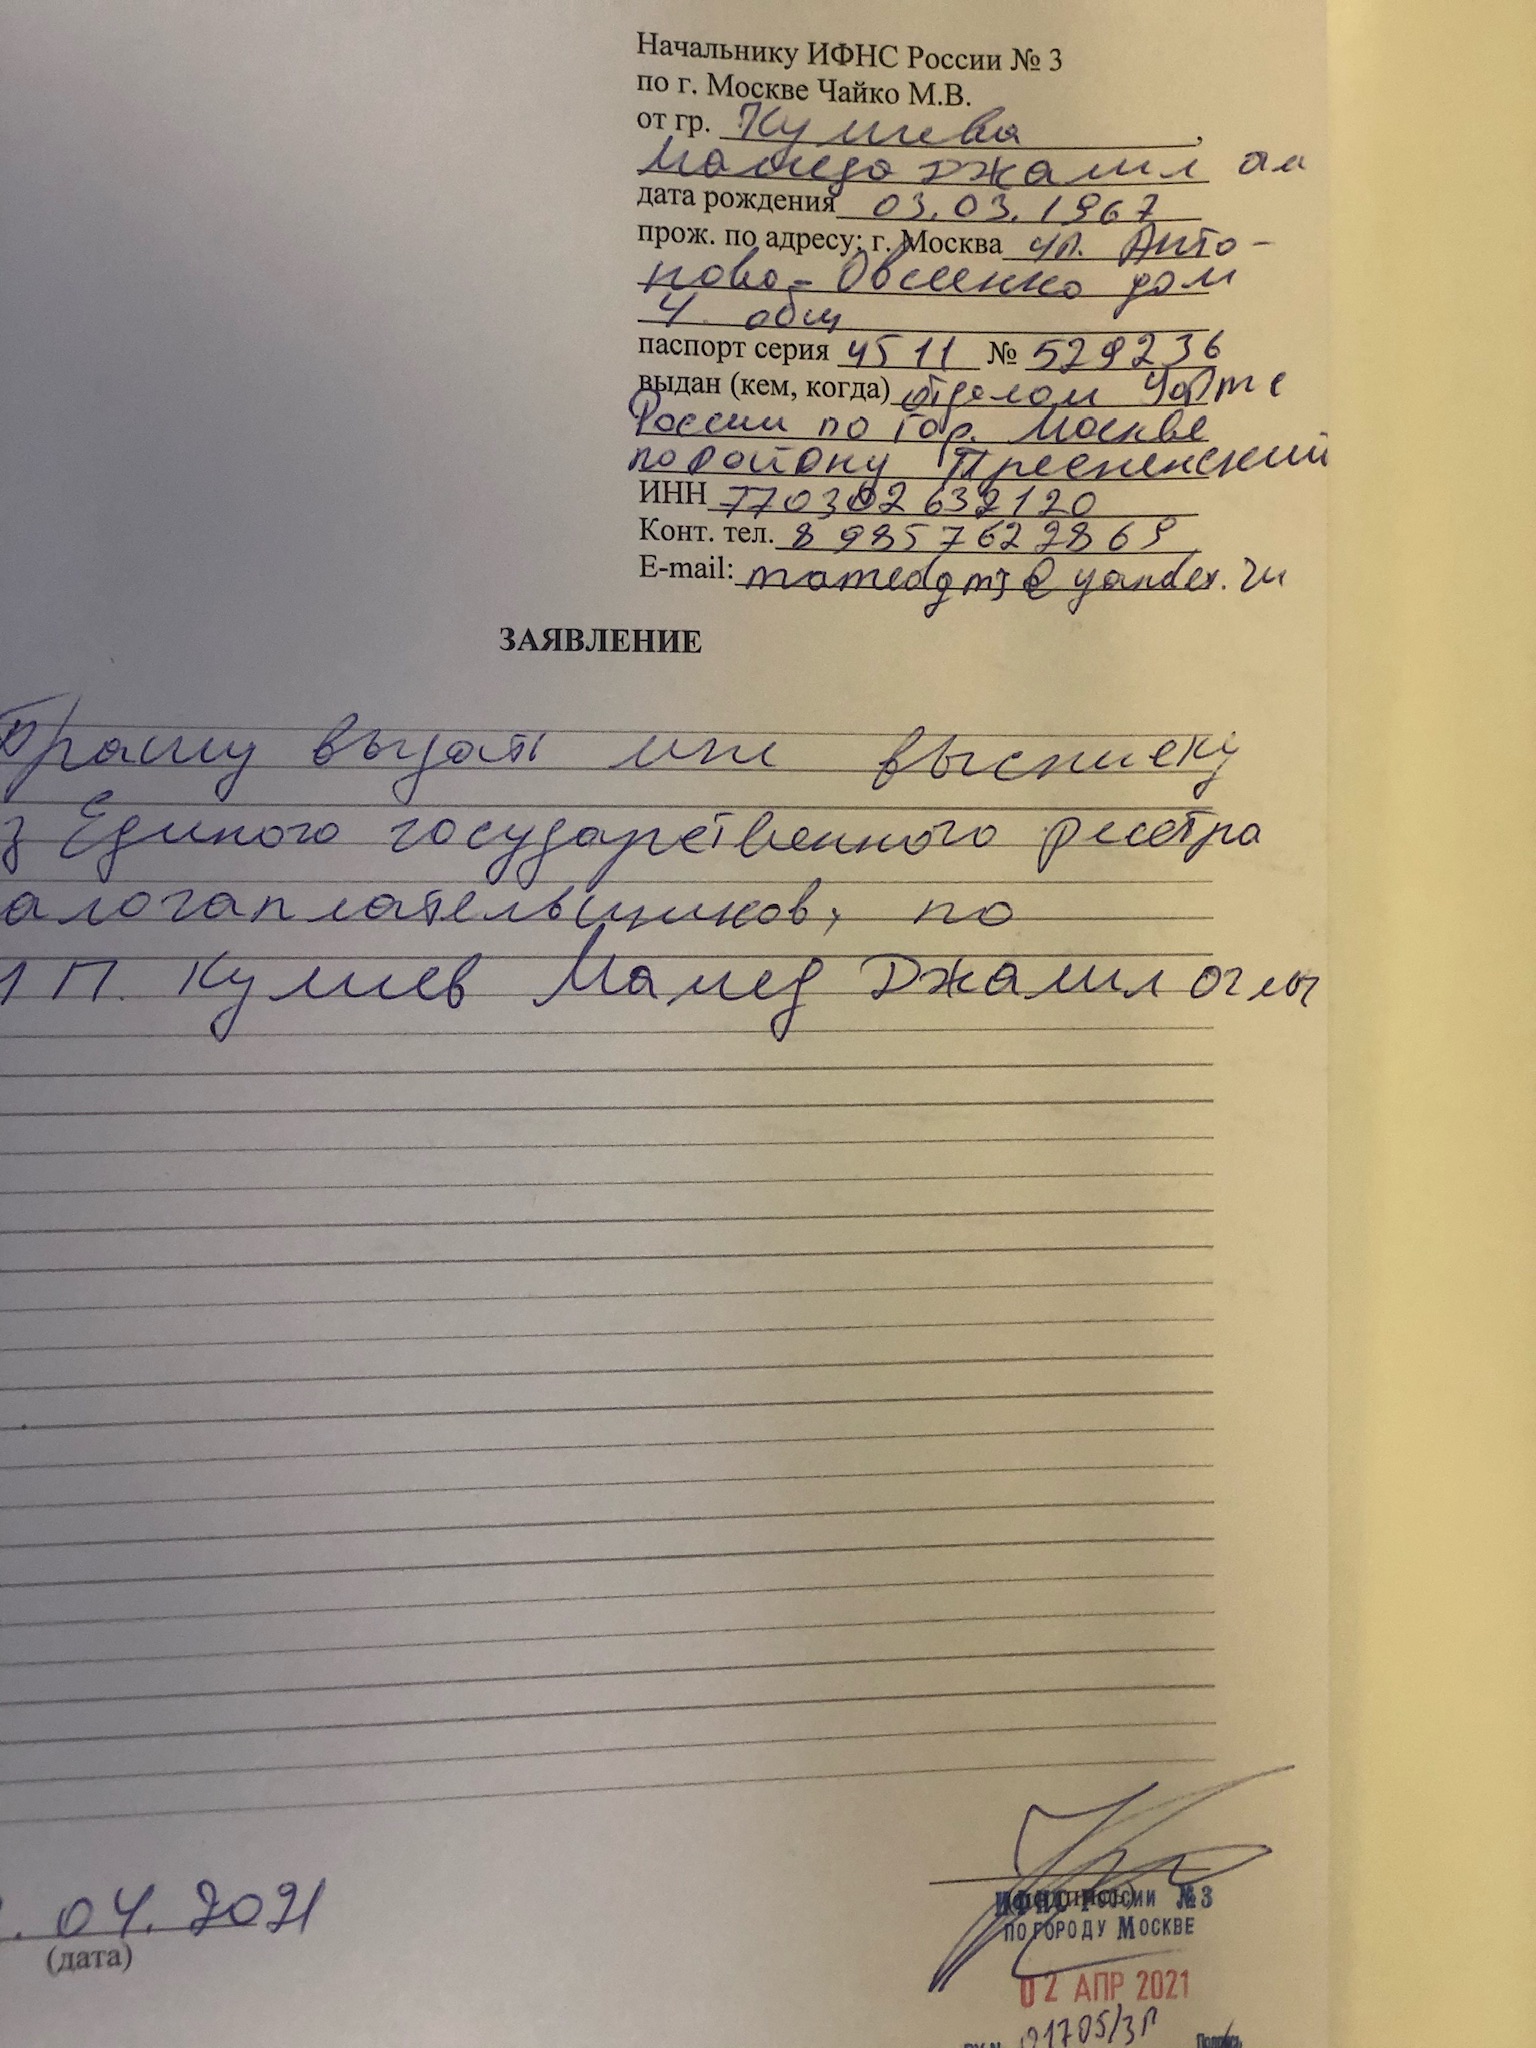 Начальнику ИФНС России № 3
по г. Москве Чайко М.В.
от гр. Кулиева,
Мамеда Джалил
дата рождения 03.03.1967
прож. по адресу: г. Москва ул. Анто-
ново-Овсеенко дом
4. общ
паспорт серия 45 11 № 529236
выдан (кем, когда) отделом УФМС
России по гор. Москве
по району Пресненский
ИНН 770302632120
Конт. тел. 8 985 762 28 69
E-mail: mamedgmj@yandex.ru
ЗАЯВЛЕНИЕ
Прошу выдать мне выписку
з Единого государственного реестра
алогаплательщиков, по
П. Кулиев Мамед Джалил оглы
. 04. 2021
(дата)
(подпись)
ИФНС России №3
по городу Москве
02 АПР 2021
01705/ЗП
Подпись